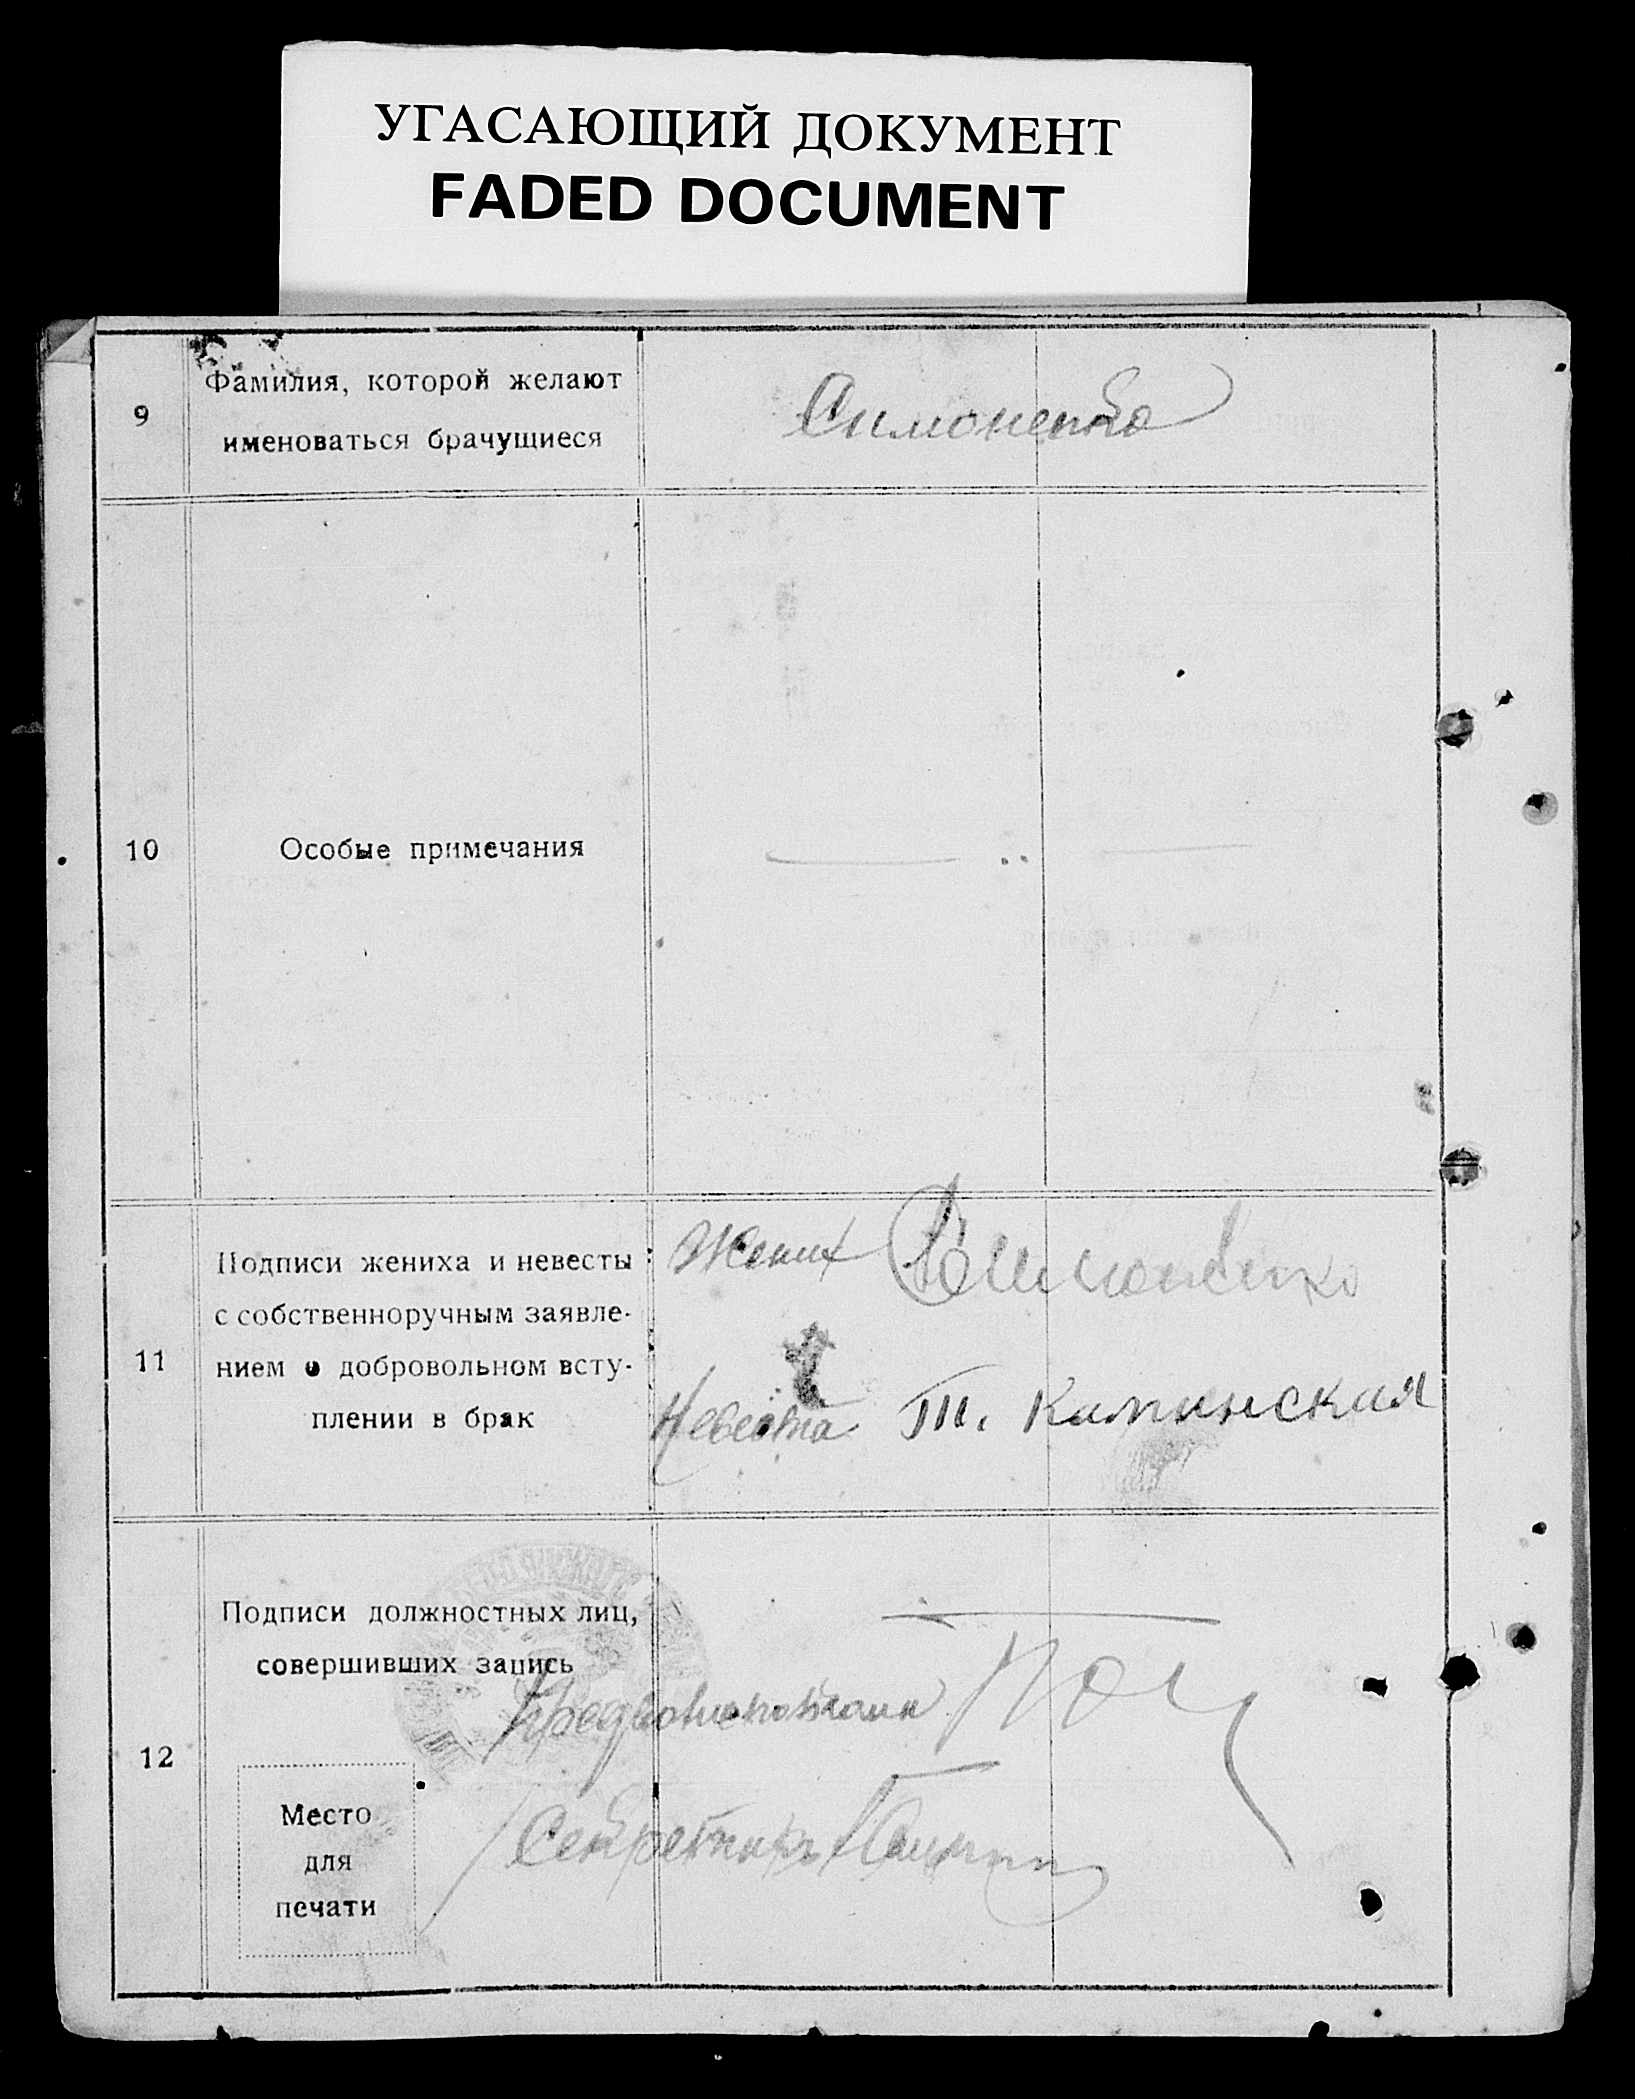 УГАСАЮЩИЙ ДОКУМЕНТ
FADED DOCUMENT
9
Фамилия, которой желают
именоваться брачущиеся
Симоненко
10
Особые примечания
11
Подписи жениха и невесты
с собственноручным заявле-
нием о добровольном всту-
плении в брак
Жених Симоненко
Невеста Т. Кипинская
12
Подписи должностных лиц,
совершивших запись
Секретарь
Место
для
печати